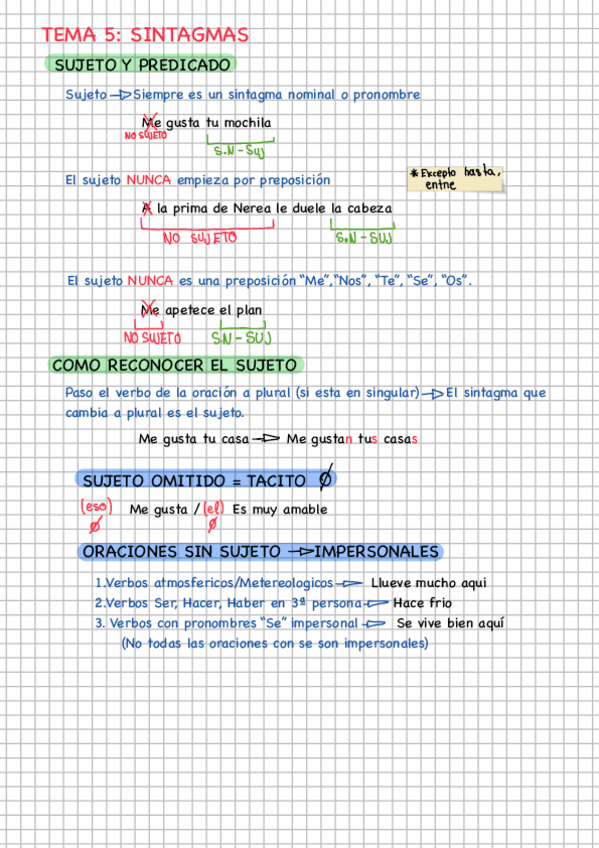 TEMA 5: SINTAGMAS
SUJETO Y PREDICADO
Sujeto → Siempre es un sintagma nominal o pronombre
Me gusta tu mochila
NO SUJETO
S.N - Suj
El sujeto NUNCA empieza por preposición
* Excepto hasta,
entre
A la prima de Nerea le duele la cabeza
NO SUJETO
S.N - SUJ
El sujeto NUNCA es una preposición “Me”,“Nos”, “Te”, “Se”, “Os”.
Me apetece el plan
NO SUJETO
S.N - SUJ
COMO RECONOCER EL SUJETO
Paso el verbo de la oración a plural (si esta en singular) → El sintagma que
cambia a plural es el sujeto.
Me gusta tu casa → Me gustan tus casas
SUJETO OMITIDO = TACITO Ø
(eso) Me gusta / (el) Es muy amable
Ø Ø
ORACIONES SIN SUJETO → IMPERSONALES
1.Verbos atmosfericos/Metereologicos → Llueve mucho aqui
2.Verbos Ser, Hacer, Haber en 3ª persona → Hace frio
3. Verbos con pronombres “Se” impersonal → Se vive bien aquí
(No todas las oraciones con se son impersonales)